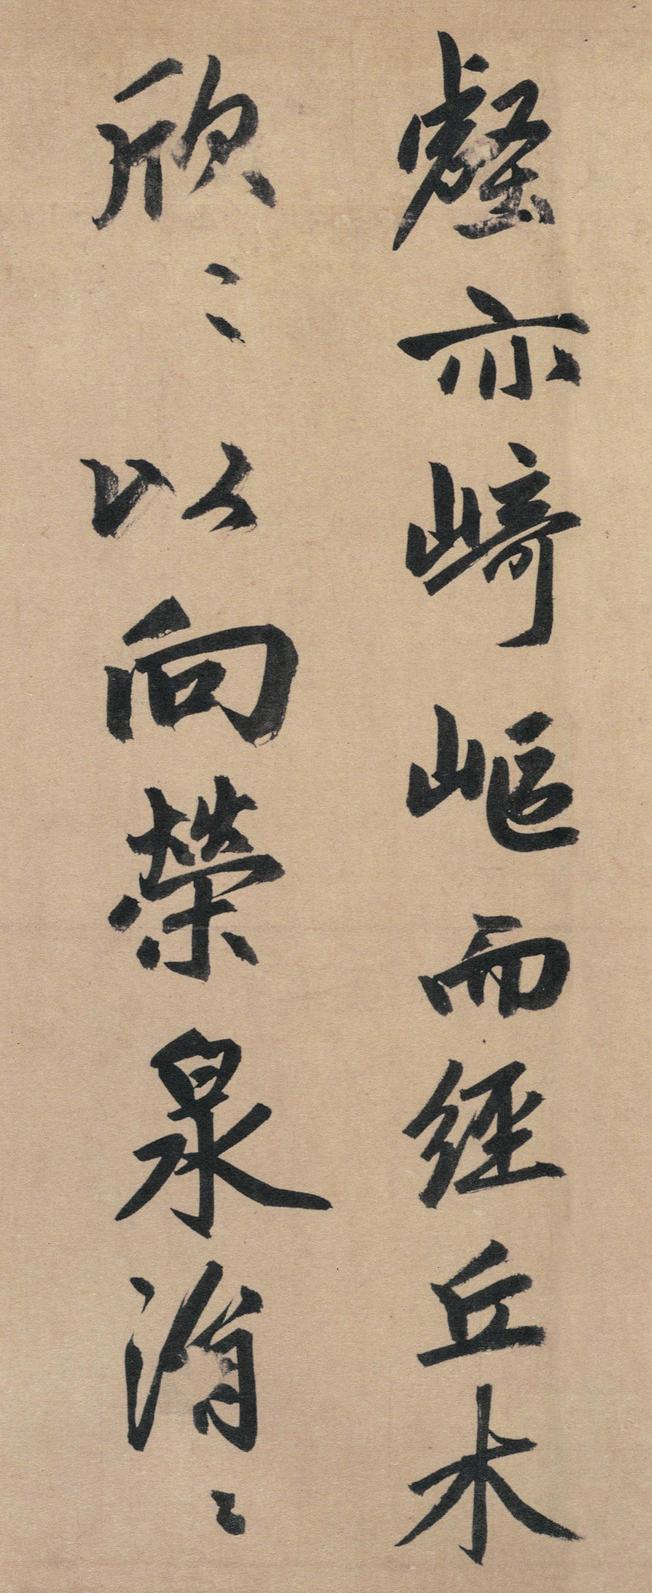 壑亦崎嶇而經丘木
欣〻以向榮泉涓〻